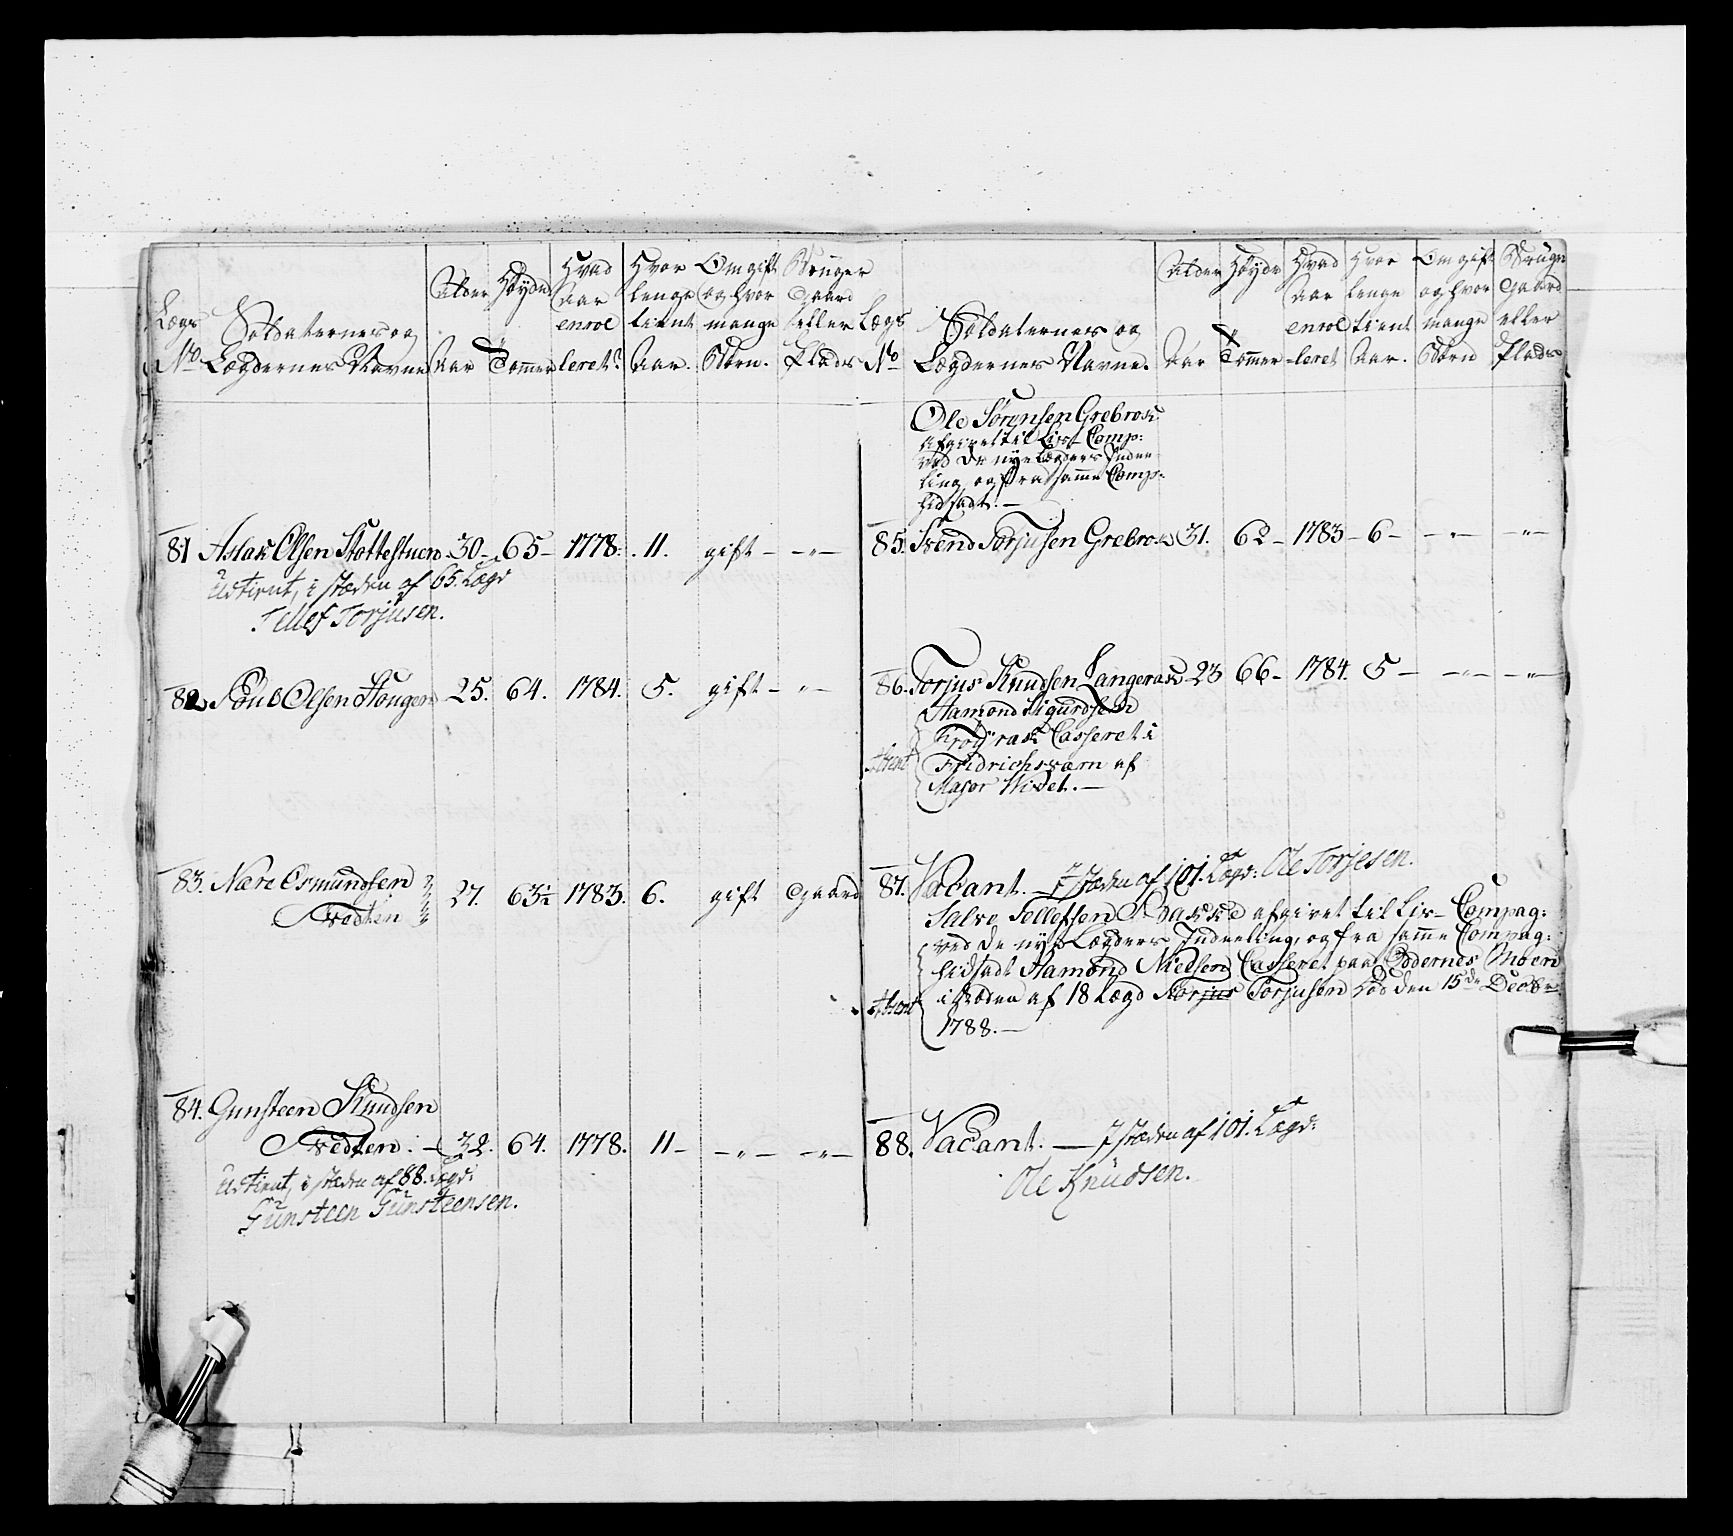 Lægs No
Soldaternes og Lægdernes Navne
Alder Aar
Høyde Tommer
Hvad Aar enroleret?
Hvor lenge tient Aar.
Om gift og hvor mange Børn.
Bruger Gaard eller Plads
81 Aslak Olsen Stottestuen 30 - 65 - 1778. 11. gift - - " -
Udtient, i stæden af 65. Lægd
Tellef Torjusen.
82 Poul Olsen Hougen 25. 64. 1784. 5. gift - " -
83. Nære Osmundsen
Tvedten 27. 63½ 1783. 6. gift Gaard
84. Gunsteen Knudsen
Tvedten. - 32. 64. 1778. 11 - - " - - " -
Udtient, i stæden af 88. Lægd:
Gunsteen Gunsteensen.
Lægs No
Soldaternes og Lægdernes Navne.
Alder Aar
Høyde Tommer
Hvad Aar enroleret
Hvor lenge tient Aar.
Om gift og hvor mange Børn
Bruger Gaard eller Plads
Ole Sørensen Grebrok
afgivet til Liv- Comp:
ved de nye Lægders Inddee-
ling, og fra samme Comp:
hidsadt. -
85. Svend Torjusen Grebrok 31. 62 - 1783 - 6 - - " - - " -
86. Torjus Knudsen Langerak 23 66 - 1784. 5 - - " - - " -
Hamond Sigurdsen
Casseret i
Fridrichsværn af
Major Widet. -
87. Vacant. - I stæden af 101. Lægd: Ole Torjesen.
Salve Tellefsen Bakke afgivet til Liv- Compag:
ved de nye Lægders Inddeeling, og fra samme Compag:
hidsadt Hamond Nielsen Casseret paa Oddernes Moen
i stæden af 18 Lægd Torjus Torjusen død den 15de Decbr
1788. -
88. Vacant. - I stæden af 101. Lægd:
Ole Knudsen.